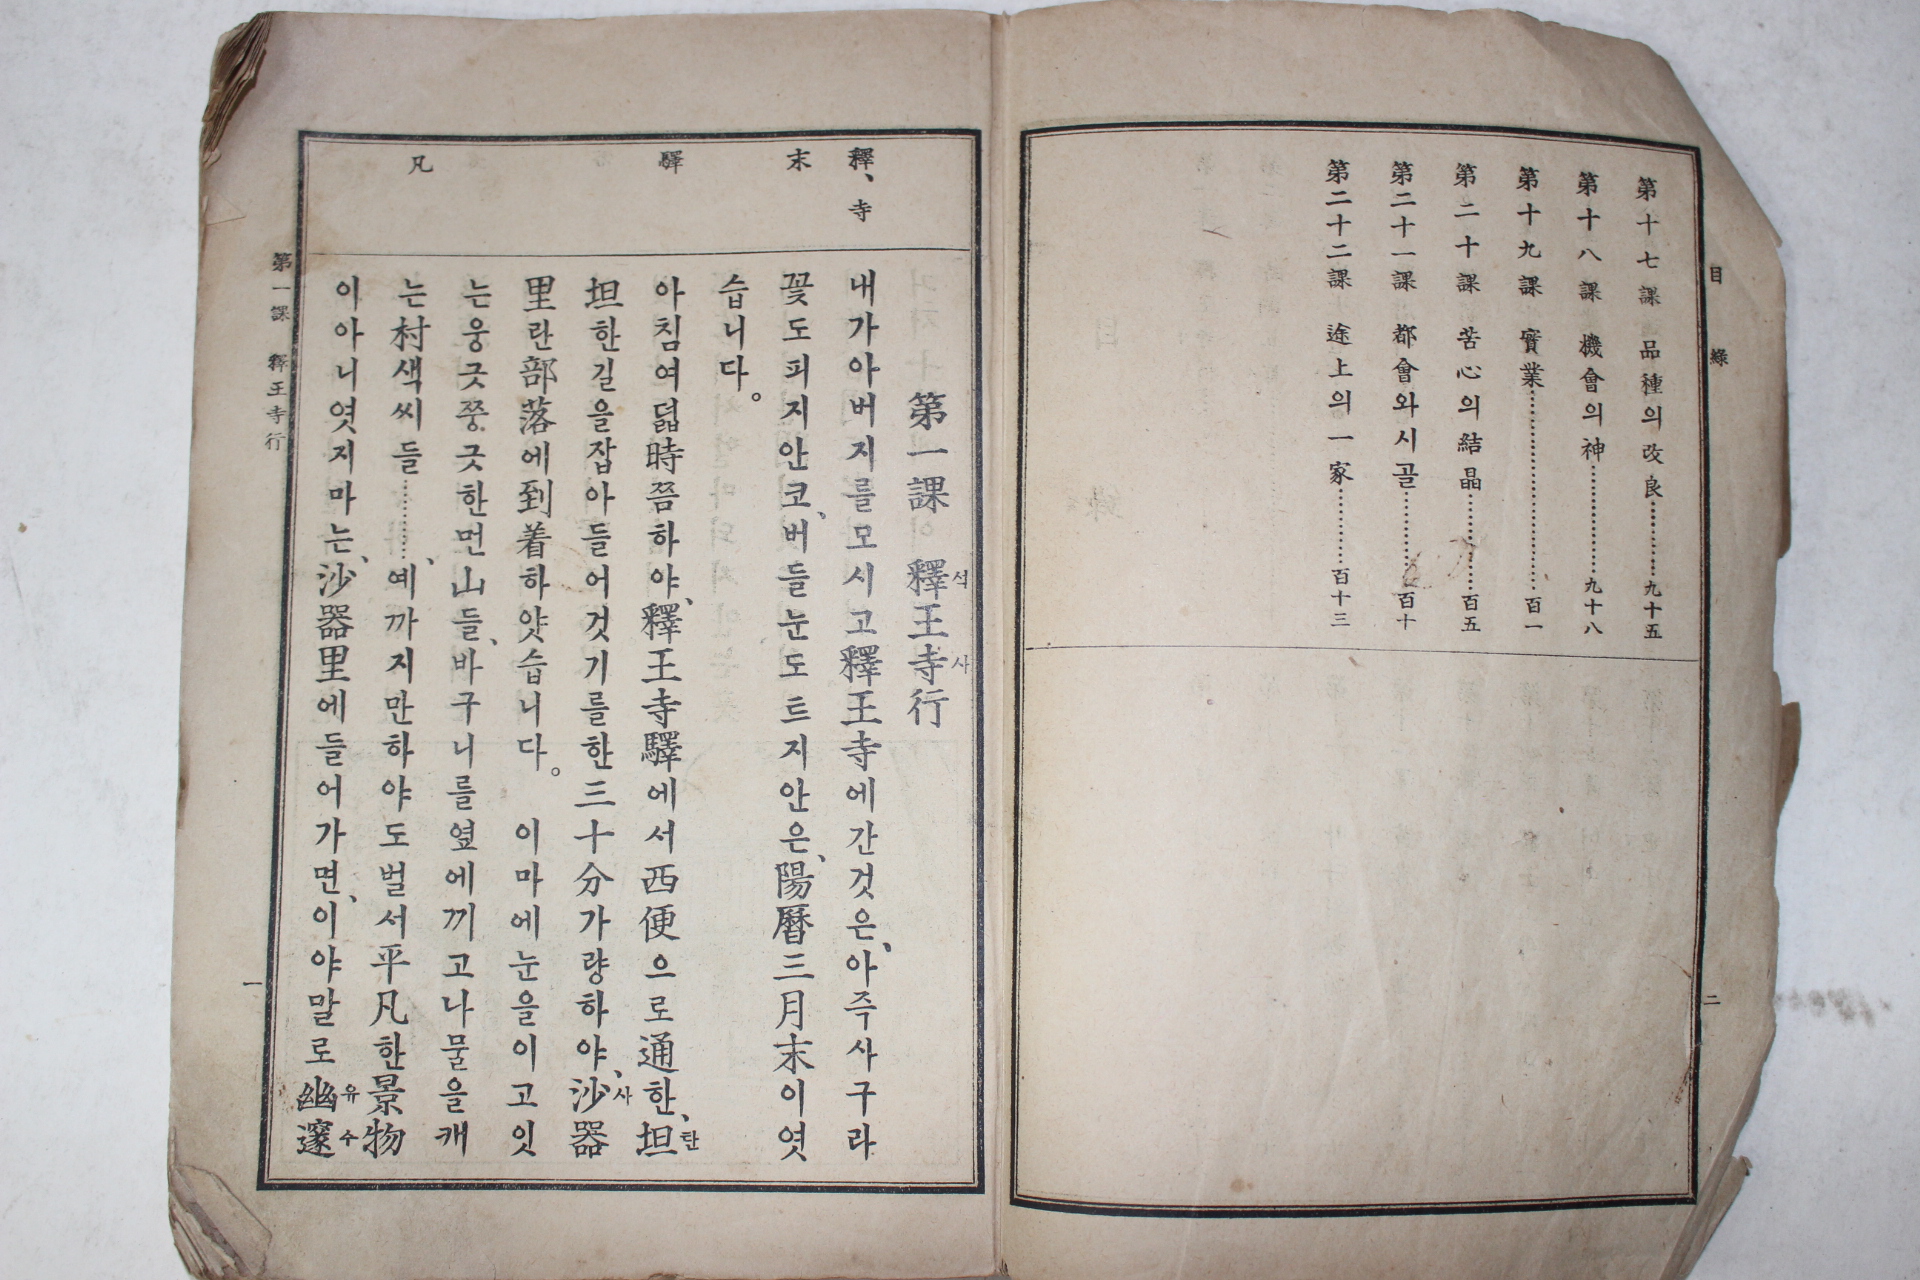 目錄
第十七課 品種의改良…………九十五
第十八課 機會의神…………九十八
第十九課 實業…………百一
第二十課 苦心의結晶…………百五
第二十一課 都會와시골…………百十
第二十二課 途上의一家…………百十三
二
釋、寺
末
驛
凡
第一課 釋王寺行
석 사
내가아버지를모시고釋王寺에간것은、아즉사구라
꽃도피지안코、버들눈도트지안은、陽曆三月末이엿
습니다。
아침여덟時쯤하야、釋王寺驛에서西便으로通한、坦
탄
坦한길을잡아들어것기를한三十分가량하야、沙器
사
里란部落에到着하얏습니다。 이마에눈을이고잇
는웅긋쭝긋한먼山들、바구니를옆에끼고나물을캐
는村색씨들…………、예까지만하야도벌서平凡한景物
이아니엿지마는、沙器里에들어가면、이야말로幽邃
유수
第一課 釋王寺行
一